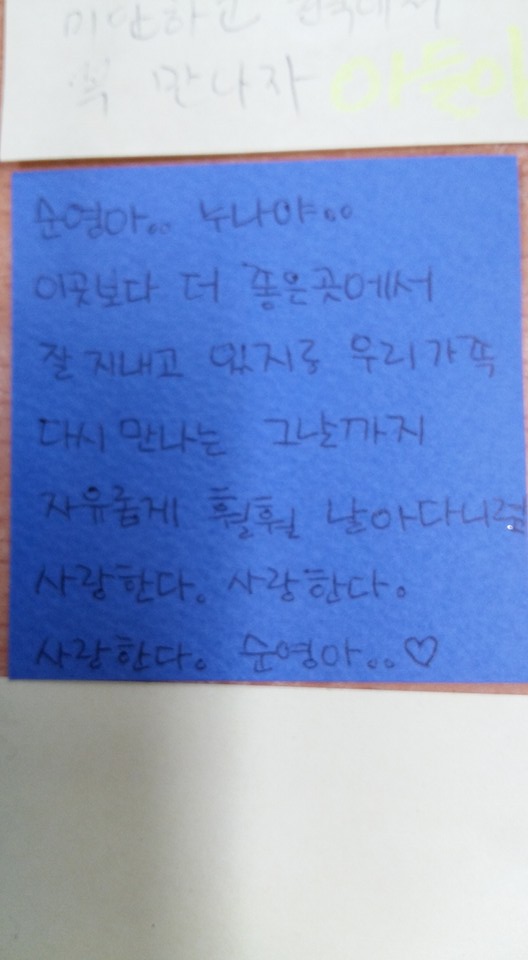 미안하고 천국에서
꼭 만나자 아들아
순영아.. 누나야..
이곳보다 더 좋은곳에서
잘 지내고 있지? 우리가족
다시 만나는 그날까지
자유롭게 훨훨 날아다니렴
사랑한다. 사랑한다.
사랑한다. 순영아..♡